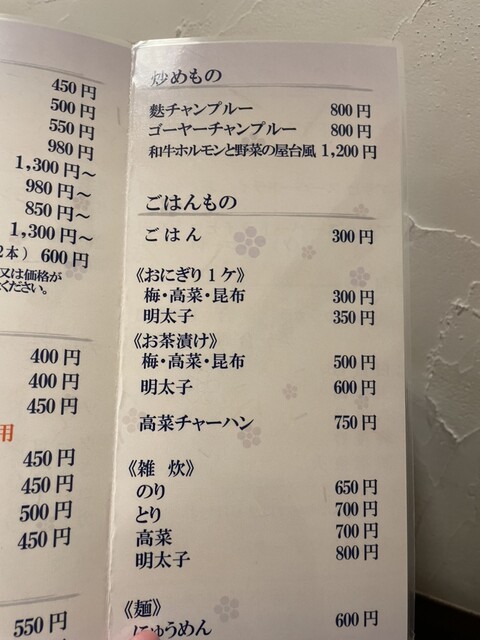 450円
500円
550円
980円
1,300円～
980円～
850円～
1,300円～
2本） 600円
又は価格が
ください。
400円
400円
450円
用
450円
450円
500円
450円
550円
炒めもの
麩チャンプルー 800円
ゴーヤーチャンプルー 800円
和牛ホルモンと野菜の屋台風 1,200円
ごはんもの
ごはん 300円
《おにぎり1ケ》
梅・高菜・昆布 300円
明太子 350円
《お茶漬け》
梅・高菜・昆布 500円
明太子 600円
高菜チャーハン 750円
《雑 炊》
のり 650円
とり 700円
高菜 700円
明太子 800円
《麺》
にゅうめん 600円